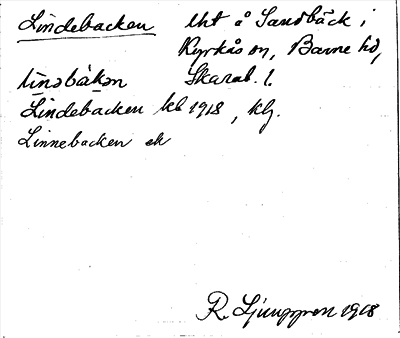 Lindebacken lht å Sandbäck i
Kyrkås sn, Barne hd,
linəbàkən Skarab. l.
Lindebacken kb 1918, klg.
Linnebacken ek
R. Ljunggren 1918